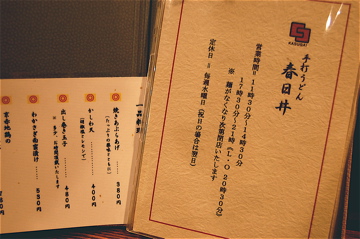 KASUGAI
手打うどん
春日井
営業時間 11時30分～14時30分
17時30分～21時(L・O 20時30分)
※ 麺がなくなり次第閉店いたします
定休日 毎週水曜日(祝日の場合は翌日)
一品料理
焼きあぶらあげ
380円
かしわ天
400円
出し巻き玉子
480円
わかさぎ南蛮漬け
580円